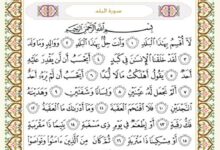 سورة البلد
بِسْمِ ٱللَّهِ ٱلرَّحْمَٰنِ ٱلرَّحِيمِ
لَآ أُقْسِمُ بِهَٰذَا ٱلْبَلَدِ ١ وَأَنتَ حِلٌّۢ بِهَٰذَا ٱلْبَلَدِ ٢ وَوَالِدٍ وَمَا وَلَدَ
٣ لَقَدْ خَلَقْنَا ٱلْإِنسَٰنَ فِى كَبَدٍ ٤ أَيَحْسَبُ أَن لَّن يَقْدِرَ عَلَيْهِ
أَحَدٌ ٥ يَقُولُ أَهْلَكْتُ مَالًا لُّبَدًا ٦ أَيَحْسَبُ أَن لَّمْ يَرَهُۥٓ أَحَدٌ
٧ أَلَمْ نَجْعَل لَّهُۥ عَيْنَيْنِ ٨ وَلِسَانًا وَشَفَتَيْنِ ٩ وَهَدَيْنَٰهُ
ٱلنَّجْدَيْنِ ١٠ فَلَا ٱقْتَحَمَ ٱلْعَقَبَةَ ١١ وَمَآ أَدْرَىٰكَ مَا ٱلْعَقَبَةُ ١٢
فَكُّ رَقَبَةٍ ١٣ أَوْ إِطْعَٰمٌ فِى يَوْمٍ ذِى مَسْغَبَةٍ ١٤ يَتِيمًا ذَا مَقْرَبَةٍ
١٥ أَوْ مِسْكِينًا ذَا مَتْرَبَةٍ ١٦ ثُمَّ كَانَ مِنَ ٱلَّذِينَ ءَامَنُوا۟ وَتَوَاصَوْا۟